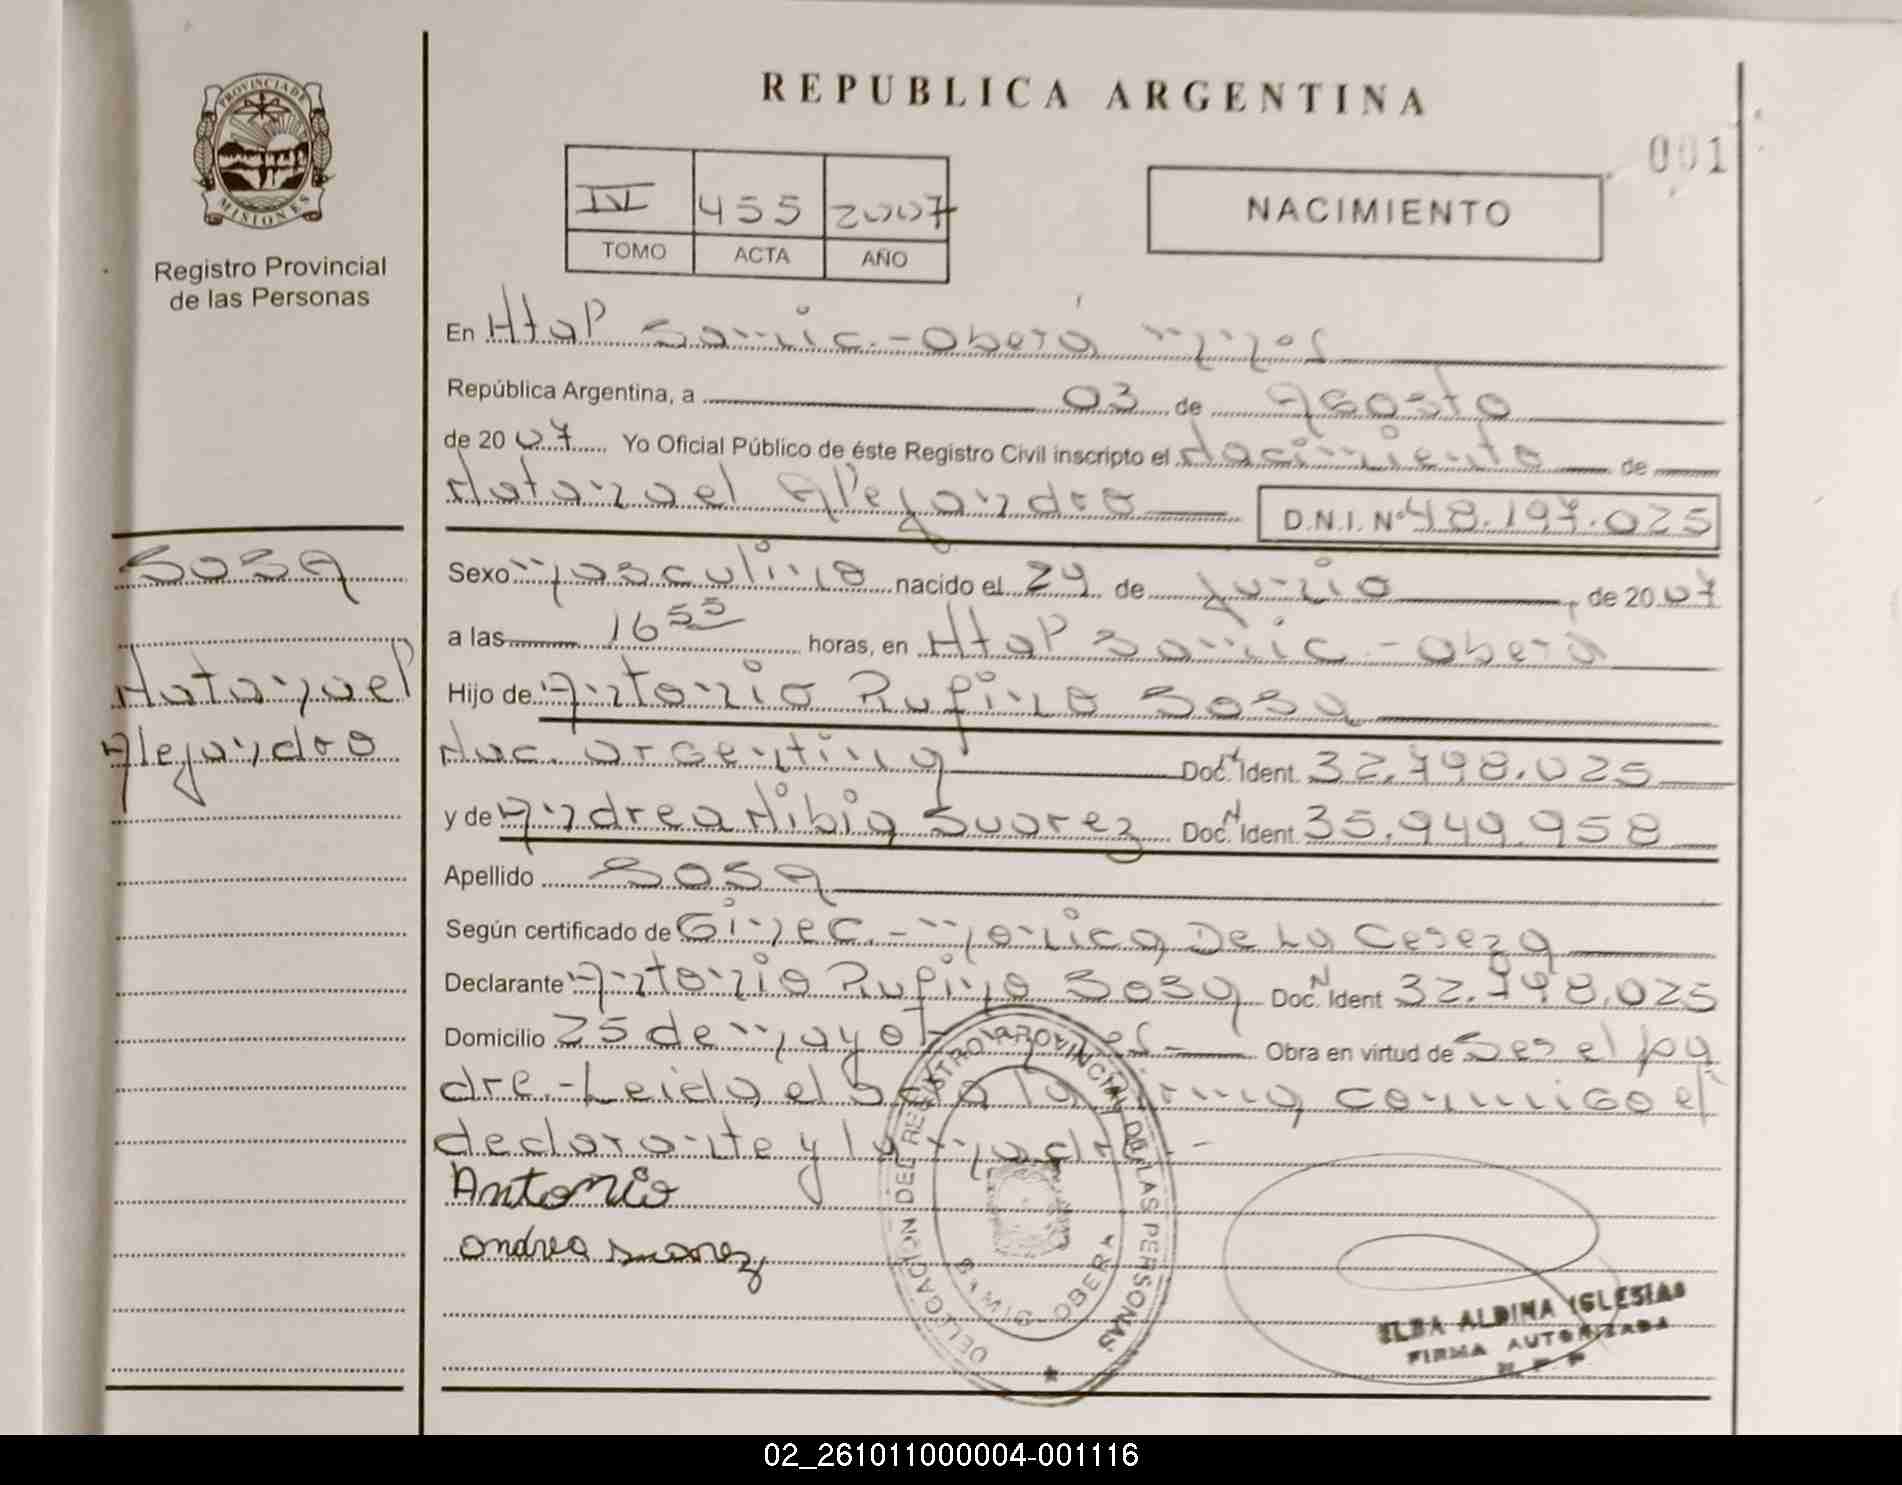 REPUBLICA ARGENTINA
001
PROVINCIA DE
MISIONES
Registro Provincial
de las Personas
IV 455 2007
TOMO ACTA AÑO
NACIMIENTO
En Htal Samic - Oberá Mnes
República Argentina, a 03 de Agosto
de 2007 Yo Oficial Público de éste Registro Civil inscripto el Nacimiento de
Natanael Alejandro D.N.I. Nº 48.197.025
Sosa
Natanael
Alejandro
Sexo Masculino nacido el 29 de Junio, de 2007
a las 16 55 horas, en Htal Samic - Oberá
Hijo de Antonio Rufino Sosa
Nac. Argentina Doc. N Ident. 32.798.025
y de Andrea Nibia Suarez Doc. N Ident. 35.949.958
Apellido Sosa
Según certificado de Ginec. - Monica De La Cereza
Declarante Antonio Rufino Sosa Doc. N Ident 32.798.025
Domicilio 25 de Mayo - Mnes - Obra en virtud de Ser el pa
dre. - Leida el acta la firma conmigo el
declarante y la madre. -
Antonio
andrea suarez
DELEGACION DEL REGISTRO PROVINCIAL DE LAS PERSONAS
OBERA
ELBA ALDINA IGLESIAS
FIRMA AUTORIZADA
02_261011000004-001116